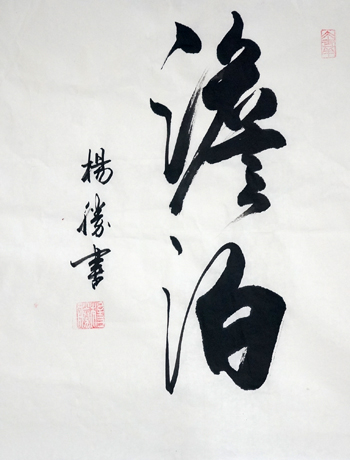 澹泊
楊勝書